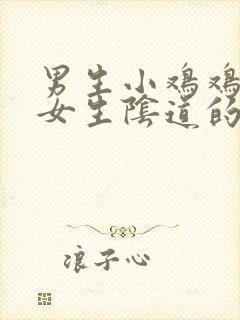 男生小鸡鸡
女生陰道的
浪子心